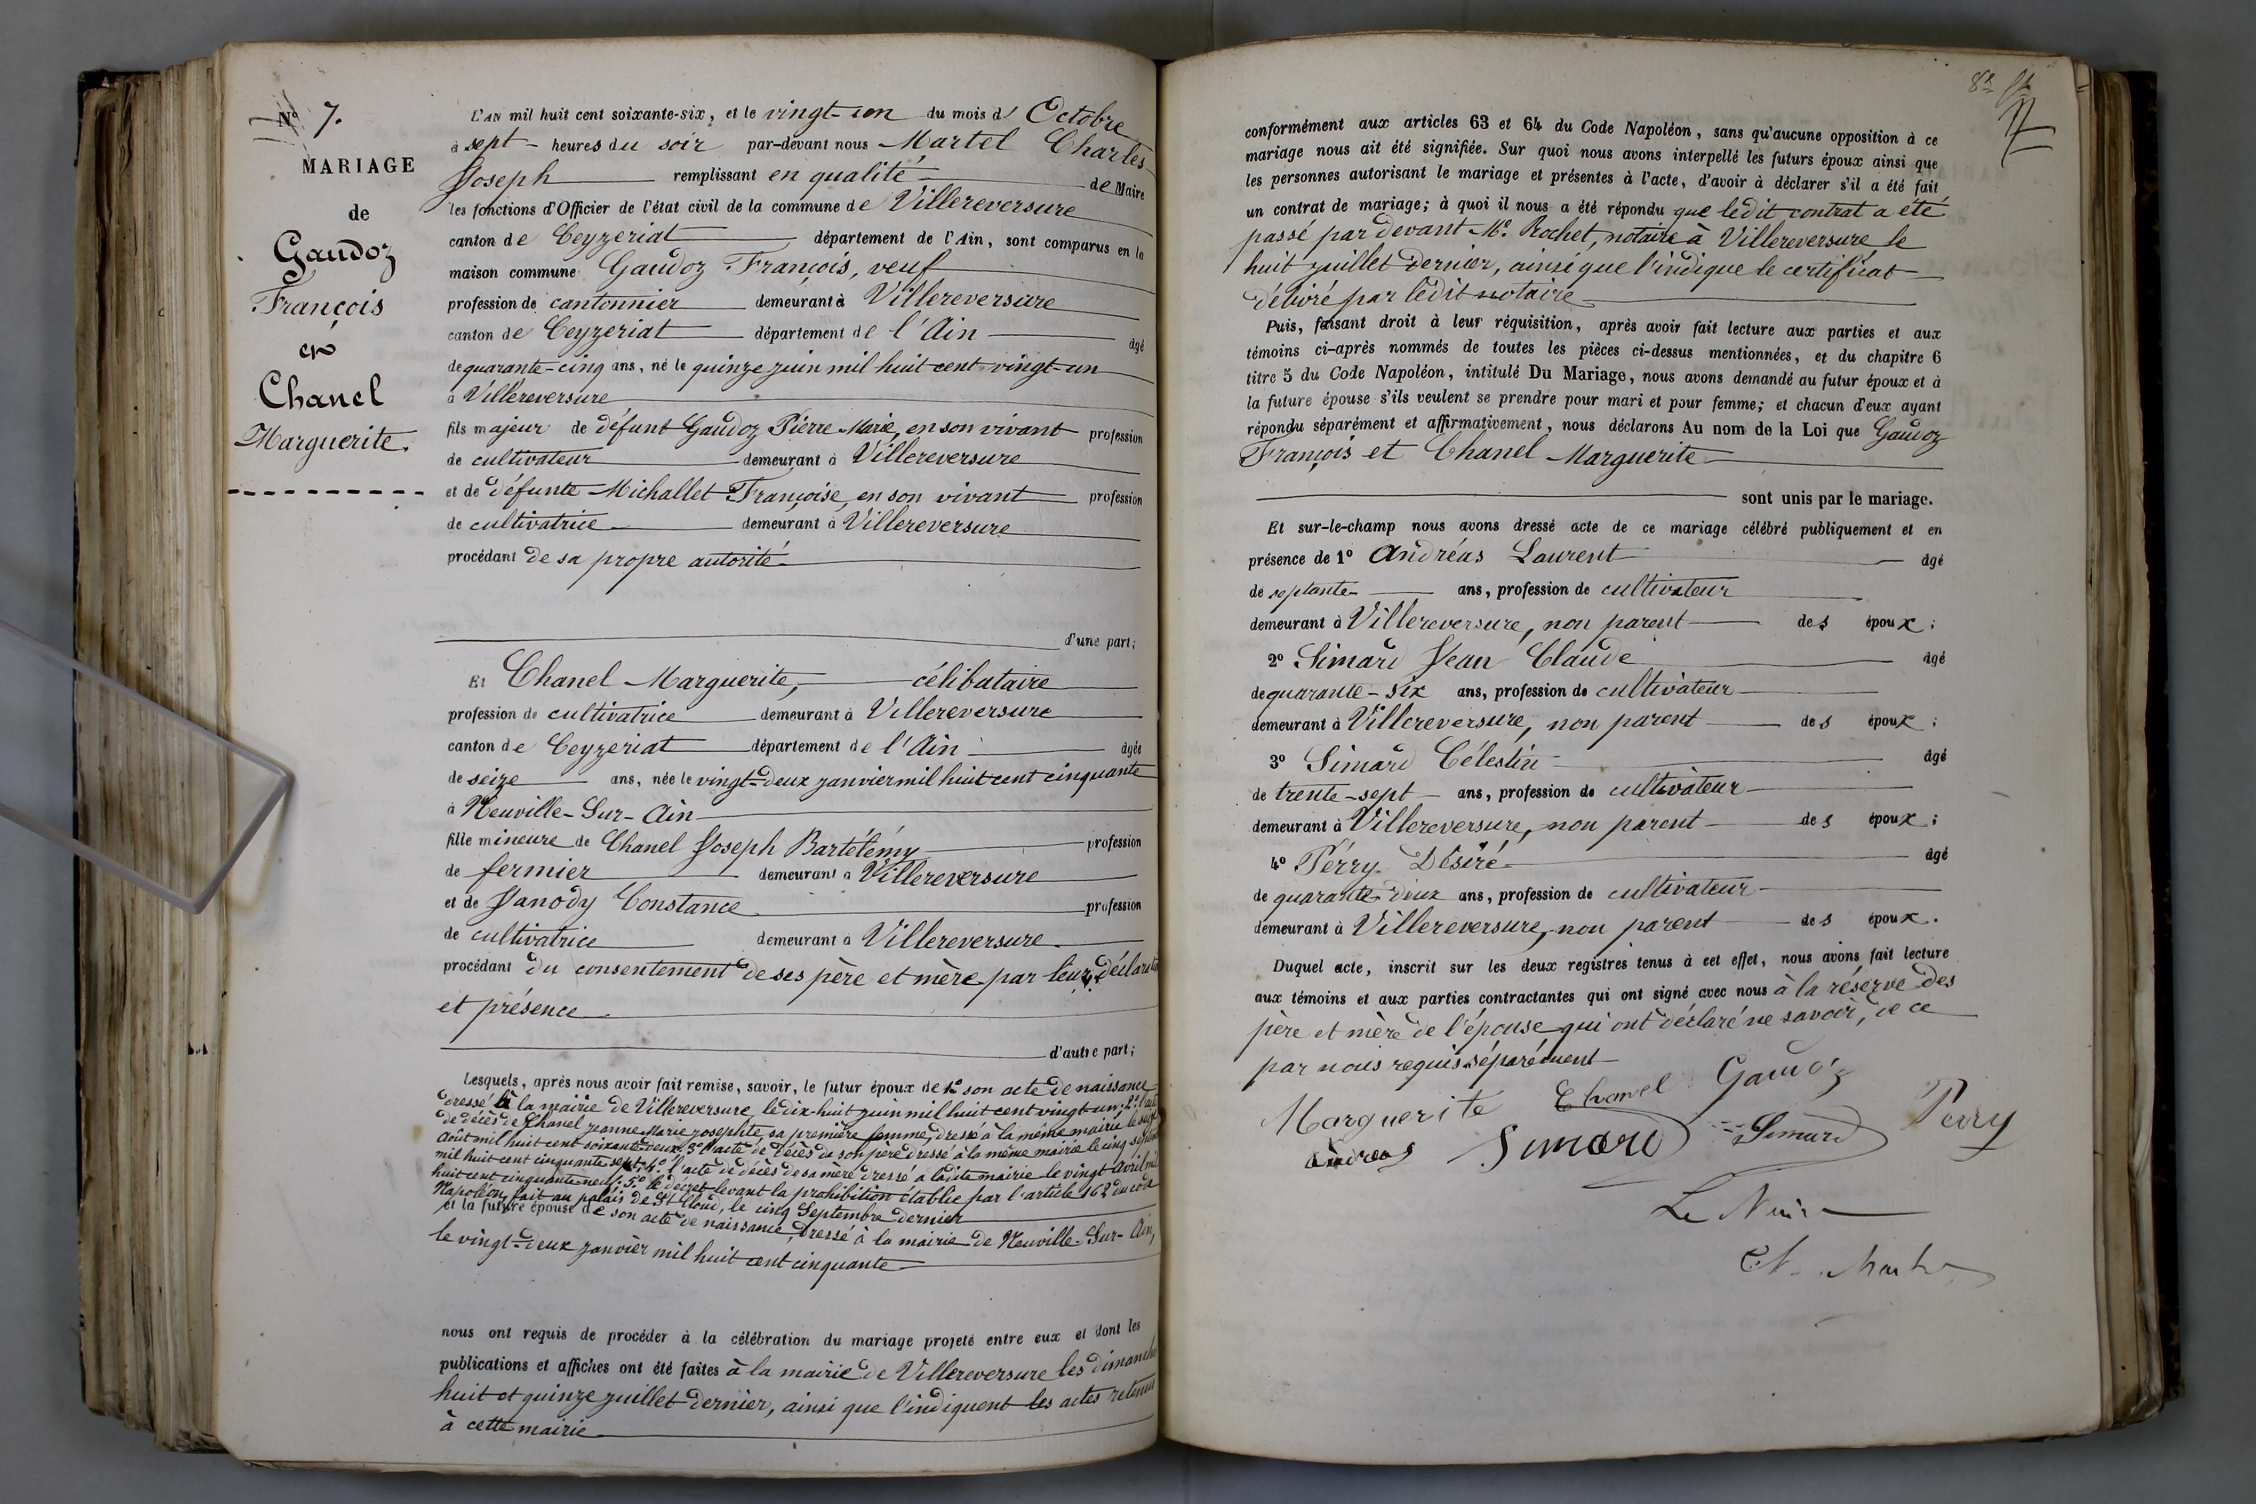 Nº 7.
MARIAGE
de
Gaudoz
François
et
Chanel
Marguerite.
L'AN mil huit cent soixante-six, et le vingt-un du mois d' Octobre
à sept heures du soir par-devant nous Martel Charles
Joseph remplissant en qualité de Maire
les fonctions d'Officier de l'état civil de la commune de Villereversure
canton de Ceyzeriat département de l'Ain, sont comparus en la
maison commune Gaudoz François, veuf
profession de cantonnier demeurant à Villereversure
canton de Ceyzeriat département de l'Ain âgé
de quarante-cinq ans, né le quinze juin mil huit cent vingt-un
à Villereversure
fils majeur de défunt Gaudoz Pierre Marie, en son vivant profession
de cultivateur demeurant à Villereversure
et de défunte Michallet Françoise, en son vivant profession
de cultivatrice demeurant à Villereversure
procédant de sa propre autorité
d'une part;
Et Chanel Marguerite, célibataire
profession de cultivatrice demeurant à Villereversure
canton de Ceyzeriat département de l'Ain âgée
de seize ans, née le vingt-deux janvier mil huit cent cinquante
à Neuville-Sur-Ain
fille mineure de Chanel Joseph Bartélémy profession
de fermier demeurant à Villereversure
et de Janody Constance profession
de cultivatrice demeurant à Villereversure
procédant du consentement de ses père et mère par leur déclaration
et présence
d'autre part;
Lesquels, après nous avoir fait remise, savoir, le futur époux de 1º son acte de naissance
dressé à la mairie de Villereversure, le dix-huit juin mil huit cent vingt-un; 2º l'acte
de décès de Chanel Jeanne Marie Josephte, sa première femme, dressé à la même mairie le
Août mil huit cent soixante deux; 3º l'acte de décès de son père dressé à la même mairie le cinq
mil huit cent cinquante sept; 4º l'acte de décès de sa mère dressé à ladite mairie le vingt Avril mil
huit cent cinquante neuf; 5º le décret levant la prohibition établie par l'article 162 du code
Napoléon, fait au palais de St Cloud, le cinq Septembre dernier
et la future épouse de son acte de naissance, dressé à la mairie de Neuville-Sur-Ain,
le vingt-deux janvier mil huit cent cinquante
nous ont requis de procéder à la célébration du mariage projeté entre eux et dont les
publications et affiches ont été faites à la mairie de Villereversure les dimanches
huit et quinze juillet dernier, ainsi que l'indiquent les actes retenus
à cette mairie
conformément aux articles 63 et 64 du Code Napoléon, sans qu'aucune opposition à ce
mariage nous ait été signifiée. Sur quoi nous avons interpellé les futurs époux ainsi que
les personnes autorisant le mariage et présentes à l'acte, d'avoir à déclarer s'il a été fait
un contrat de mariage; à quoi il nous a été répondu que ledit contrat a été
passé par devant Me. Rochet, notaire à Villereversure le
huit juillet dernier, ainsi que l'indique le certificat
délivré par ledit notaire
Puis, faisant droit à leur réquisition, après avoir fait lecture aux parties et aux
témoins ci-après nommés de toutes les pièces ci-dessus mentionnées, et du chapitre 6
titre 5 du Code Napoléon, intitulé Du Mariage, nous avons demandé au futur époux et à
la future épouse s'ils veulent se prendre pour mari et pour femme; et chacun d'eux ayant
répondu séparément et affirmativement, nous déclarons Au nom de la Loi que Gaudoz
François et Chanel Marguerite
sont unis par le mariage.
Et sur-le-champ nous avons dressé acte de ce mariage célébré publiquement et en
présence de 1º Andréas Laurent âgé
de septante ans, profession de cultivateur
demeurant à Villereversure, non parent des époux;
2º Simard Jean Claude âgé
de quarante-six ans, profession de cultivateur
demeurant à Villereversure, non parent des époux;
3º Simard Célestin âgé
de trente-sept ans, profession de cultivateur
demeurant à Villereversure, non parent des époux;
4º Pérry Désiré âgé
de quarante-deux ans, profession de cultivateur
demeurant à Villereversure, non parent des époux.
Duquel acte, inscrit sur les deux registres tenus à cet effet, nous avons fait lecture
aux témoins et aux parties contractantes qui ont signé avec nous à la réserve des
père et mère de l'épouse qui ont déclaré ne savoir, de ce
par nous requis séparément
Marguerite Chanel Gaudoz
Andreas Simard Simard Perry
Le Maire
Ch. Martel